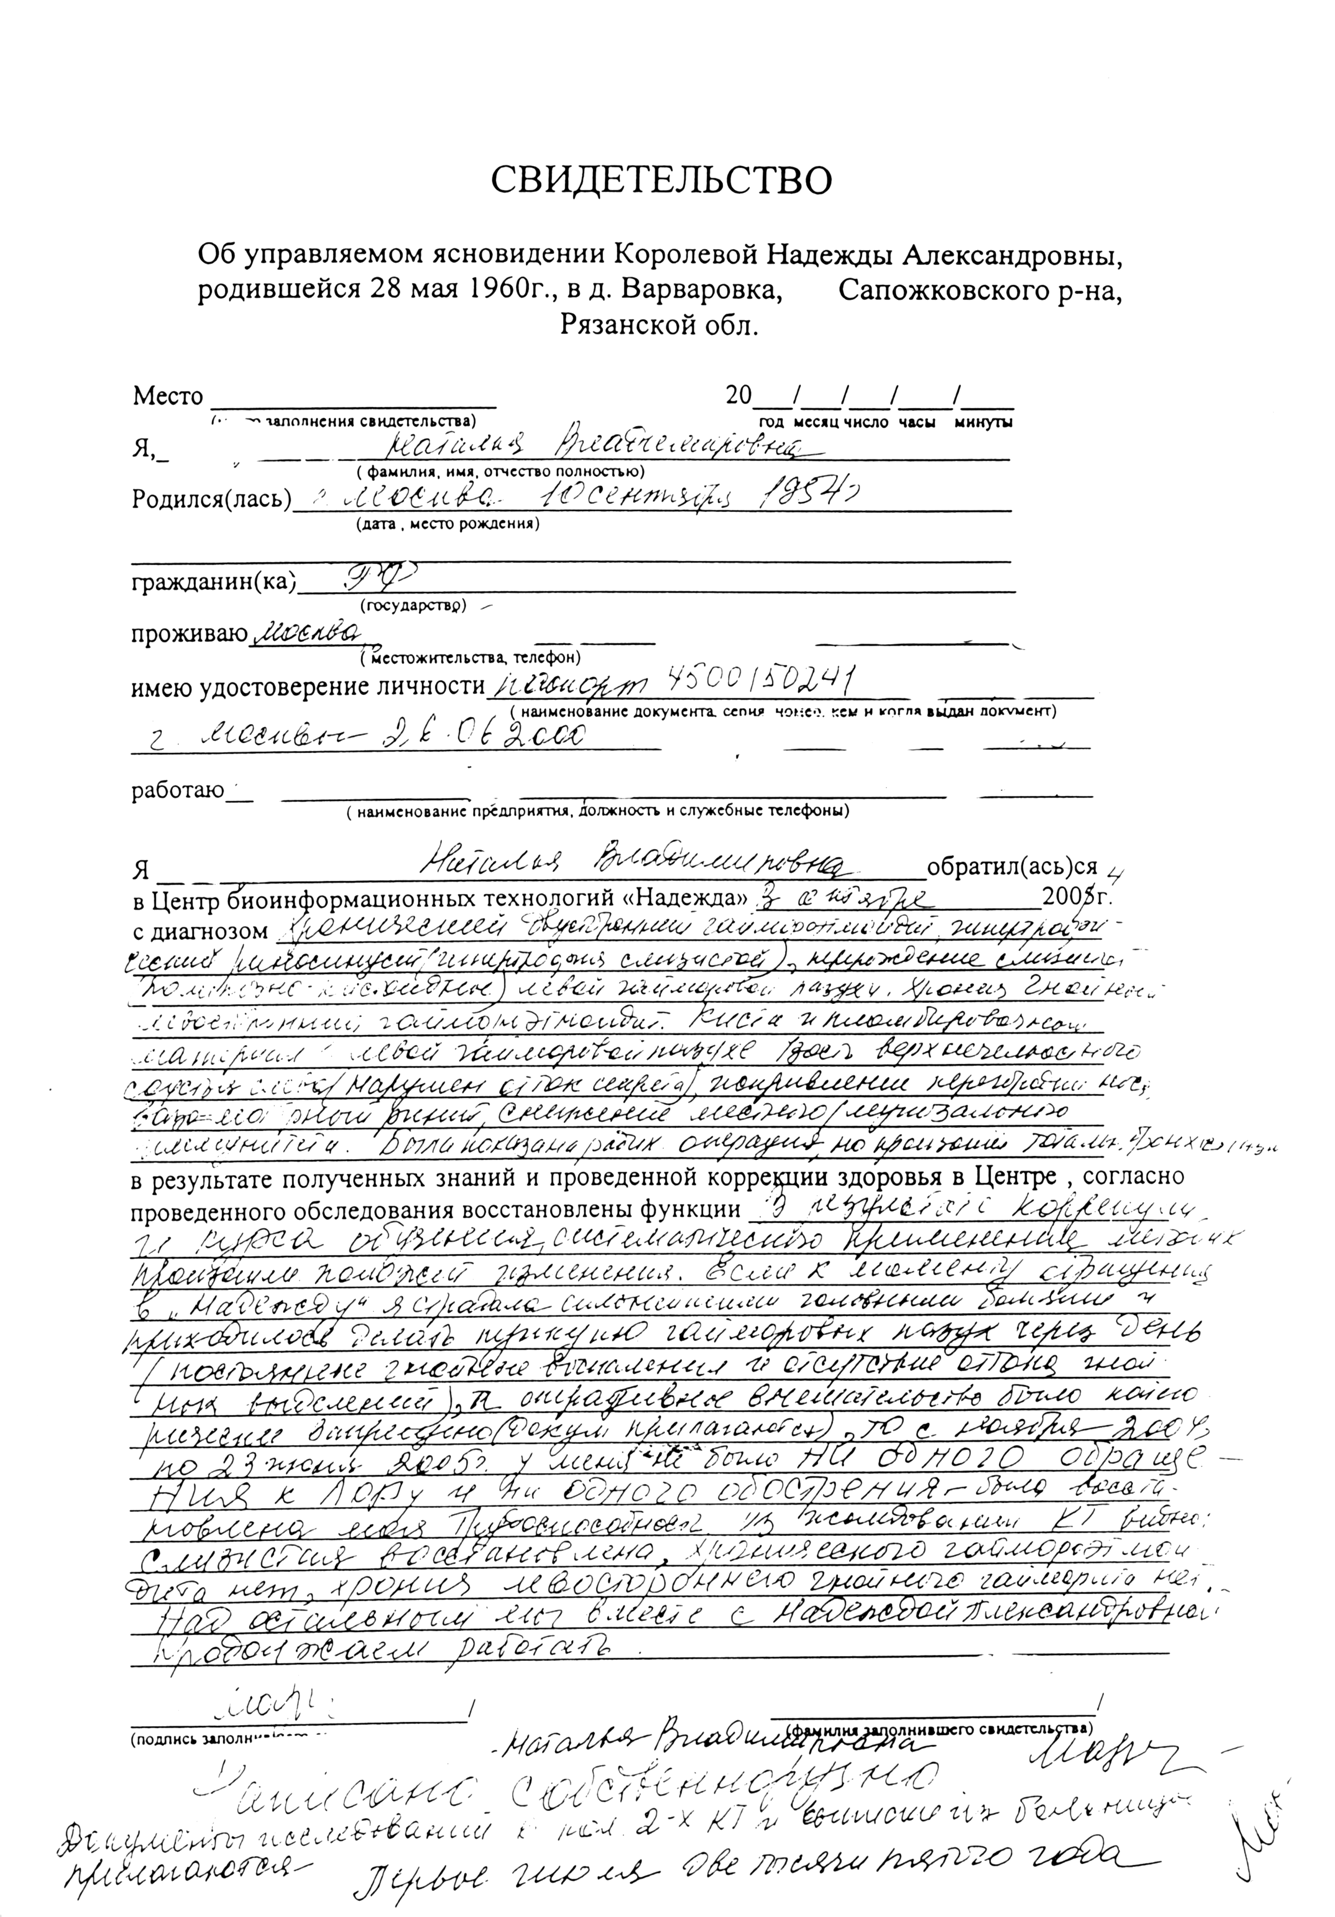 СВИДЕТЕЛЬСТВО
Об управляемом ясновидении Королевой Надежды Александровны,
родившейся 28 мая 1960г., в д. Варваровка, Сапожковского р-на,
Рязанской обл.
Место 20 / / / /
заполнения свидетельства) год месяц число часы минуты
Я, Наталья Владимировна
( фамилия, имя, отчество полностью)
Родился(лась) г Москва 10 сентября 1954г
(дата , место рождения)
гражданин(ка) РФ
(государство)
проживаю Москва
( местожительства, телефон)
имею удостоверение личности паспорт 4500150241
( наименование документа, серия, номер, кем и когда выдан документ)
г. Москвы 26.06 2000
работаю
( наименование предприятия, должность и служебные телефоны)
Я Наталья Владимировна обратил(ась)ся
в Центр биоинформационных технологий «Надежда» в октябре 200 г.
с диагнозом хронический двусторонний гаймороэтмоидит, гипертрофи-
ческий риносинусит (гипертрофия слизистой), перерождение слизистой
(полипозно-кистоидное) левой гайморовой пазухи. Хрония гнойный
левосторонний гаймороэтмоидит. Киста и пломбировочный
материал в левой гайморовой пазухе верхнечелюстного
соустья слева (нарушен отток секрета), искривление перегородки носа,
ринит, снижение местного/мукозального
иммунитета. Была показана операция, но
в результате полученных знаний и проведенной коррекции здоровья в Центре , согласно
проведенного обследования восстановлены функции В результате коррекции
и курса обучения, систематического применения методик
произошли изменения. Если к моменту обращения
в „Надежду“ я страдала сильнейшими головными болями и
приходилось делать пункцию гайморовых пазух через день
(постоянные гнойные воспаления и отсутствие оттока гной-
ных выделений), а оперативное вмешательство было катего
рически запрещено (докум прилагаются), то с ноября 2004
по 23 июня 2005г. у меня не было ни одного обраще-
ния к Лору и ни одного обострения – была восста-
новлена моя трудоспособность из исследования КТ видно:
слизистая восстановлена, хронического гаймороэтмои
дита нет, хрония левостороннего гнойного гайморита нет.
Над остальным мы вместе с Надеждой Александровной
продолжаем работать.
/ /
(подпись (фамилия заполнившего свидетельства)
Наталья Владимировна
Написано собственноручно
Документы исследований 2-х КТ и выписки из больницы
прилагаются
Первое июля две тысячи пятого года